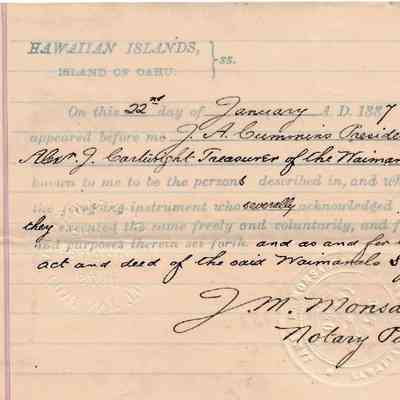 HAWAIIAN ISLANDS,
ISLAND OF OAHU. } ss.
On this 22nd day of January A. D. 1887
appeared before me J. A. Cummins Preside
Alexr. J. Cartwright Treasurer of the Waiman
known to me to be the persons described in, and wh
the foregoing instrument who severally acknowledged
they executed the same freely and voluntarily, and f
and purposes therein set forth. and as and for
act and deed of the said Waimanalo S
J. M. Monsa
Notary P